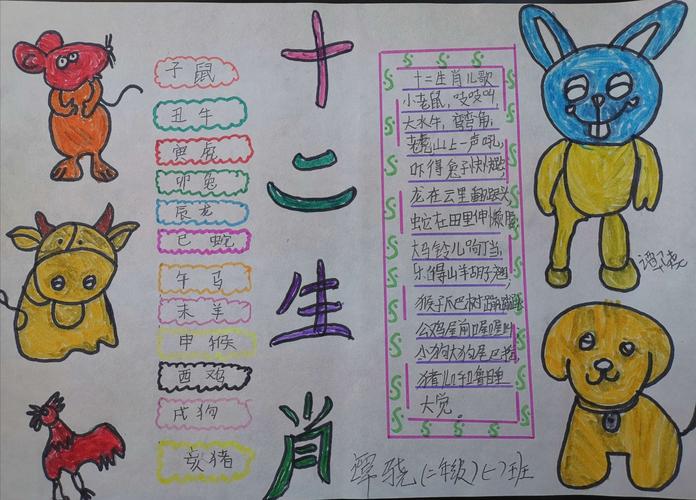 子鼠
丑牛
寅虎
卯兔
辰龙
巳蛇
午马
未羊
申猴
酉鸡
戌狗
亥猪
十二生肖
十二生肖儿歌
小老鼠，吱吱叫，
大水牛，弯弯角，
老虎山上一声吼，
吓得兔子快快跑
龙在云里翻跟头，
蛇在田里伸懒腰
大马铃儿响叮当，
乐得山羊胡子翘，
猴子爬树
公鸡屋前喔喔叫
小狗大狗尾巴摇，
猪儿呼噜
大觉。
覃骁(二年级)(一)班